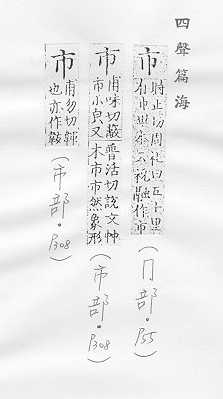 四聲篇海
市 時止切周礼曰五十里有市世本云祝融作市 (冂部。P55)
市 甫味切蔽市小皃又普活切說文艸木市市然象形 (市部。P308)
市 甫勿切韠也亦作韍 (市部。P308)